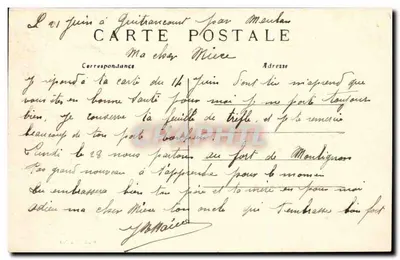 Le 21 Juin à Guitrancourt par Meulan
CARTE POSTALE
Ma cher Mièce
Correspondance Adresse
Je réponds a ta carte du 14 Juin dont tu m'aprend que
vous êtes en bonne santé pour moi je me porte toujours
bien. Je conserve ta feuille de trèfle, et je te remercie
beaucoup de ton porte
Lundi le 28 nous partons au fort de Montlignon
Pas grand nouveau à t'apprendre pour le moment
Tu embrassera bien ton père et ta mère en pour moi
adieu ma cher Mièce ton oncle qui t'embrasse bien fort